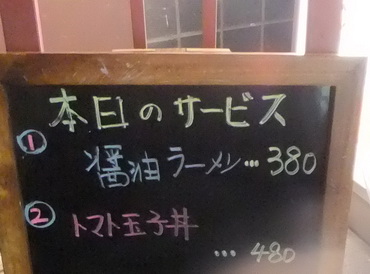 本日のサービス
① 醤油ラーメン…380
② トマト玉子丼
…480